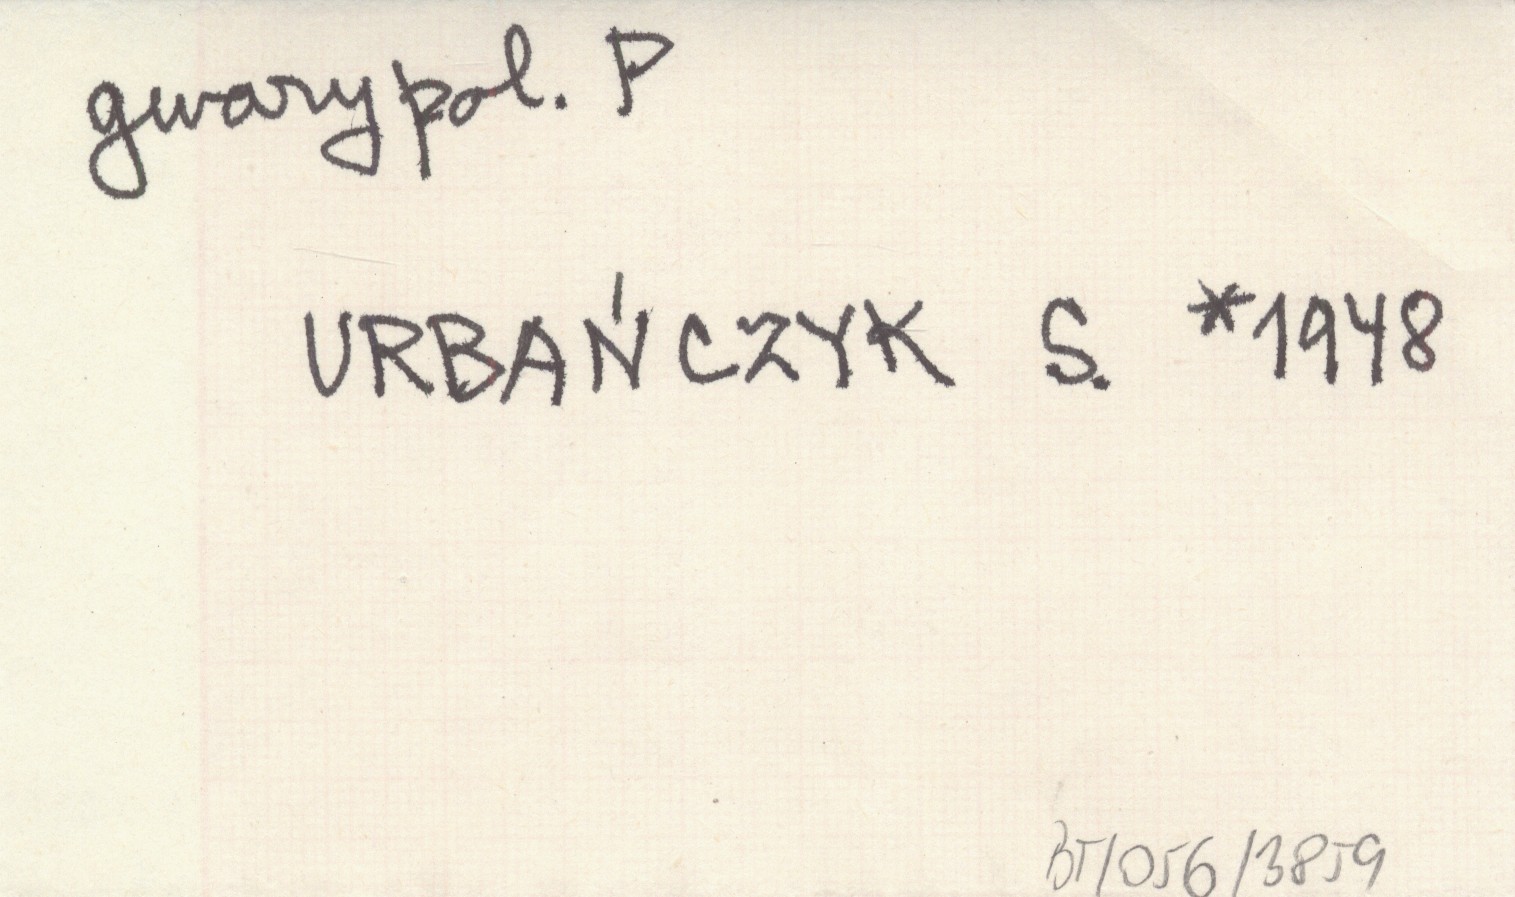 gwary pol. P
URBAŃCZYK S. *1948
BT/056/3859